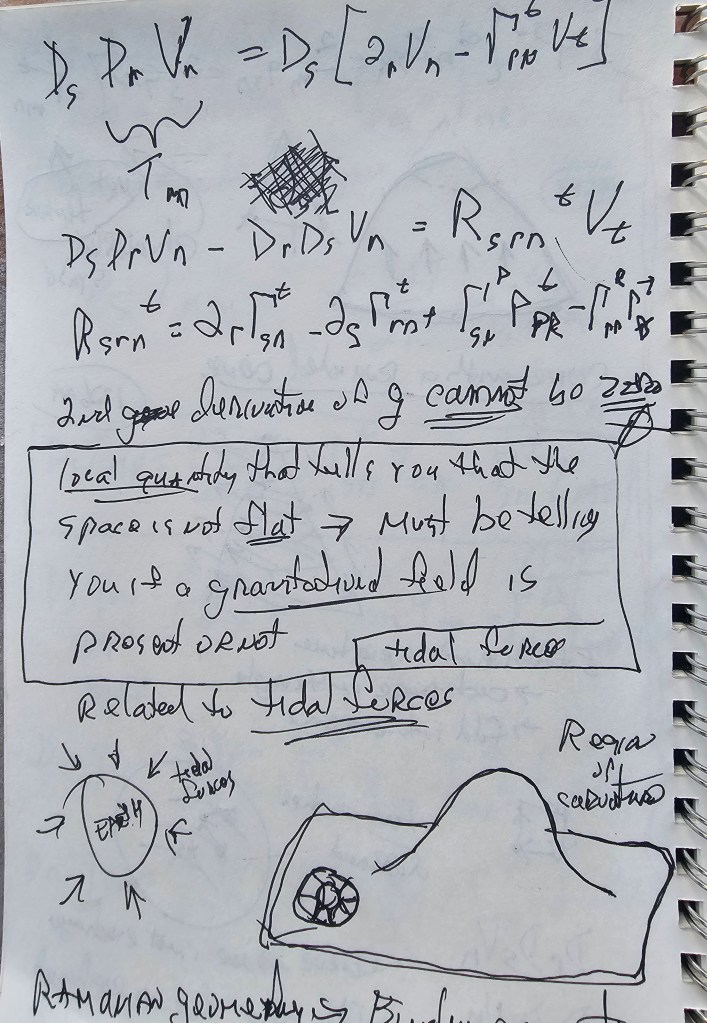 D_s D_r V_n = D_s [∂_r V_n - Γ_rn^t V_t]
T_rn
D_s D_r V_n - D_r D_s V_n = R_srn^t V_t
R_srn^t = ∂_r Γ_sn^t - ∂_s Γ_rn^t + Γ_sn^p Γ_pr^t - Γ_rn^p Γ_ps^t
2nd derivative of g cannot be zero
local quantity that tells you that the
space is not flat → Must be telling
you if a gravitational field is
present or not
tidal forces
Related to tidal forces
Region
of
curvature
tidal
forces
EARTH
geometry is